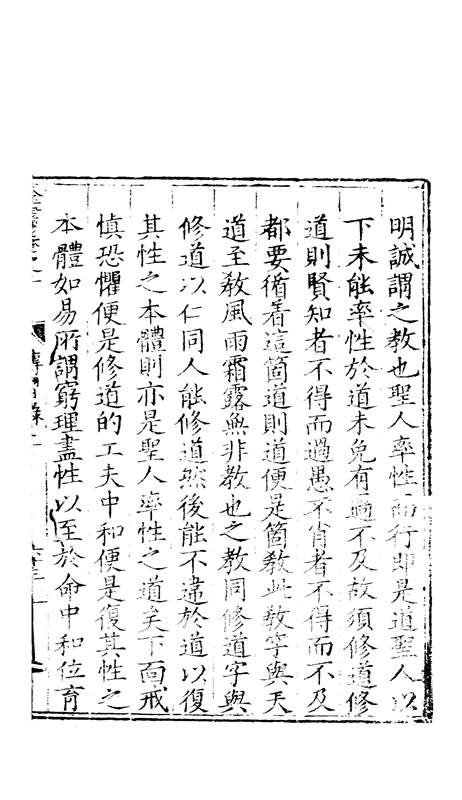 明誠謂之教也聖人率性而行即是道聖人以
下未能率性於道未免有過不及故須修道修
道則賢知者不得而過愚不肖者不得而不及
都要循着這箇道則道便是箇教此教字與天
道至教風雨霜露無非教也之教同修道字與
修道以仁同人能修道然後能不違於道以復
其性之本體則亦是聖人率性之道矣下面戒
慎恐懼便是修道的工夫中和便是復其性之
本體如易所謂窮理盡性以至於命中和位育
傳習錄